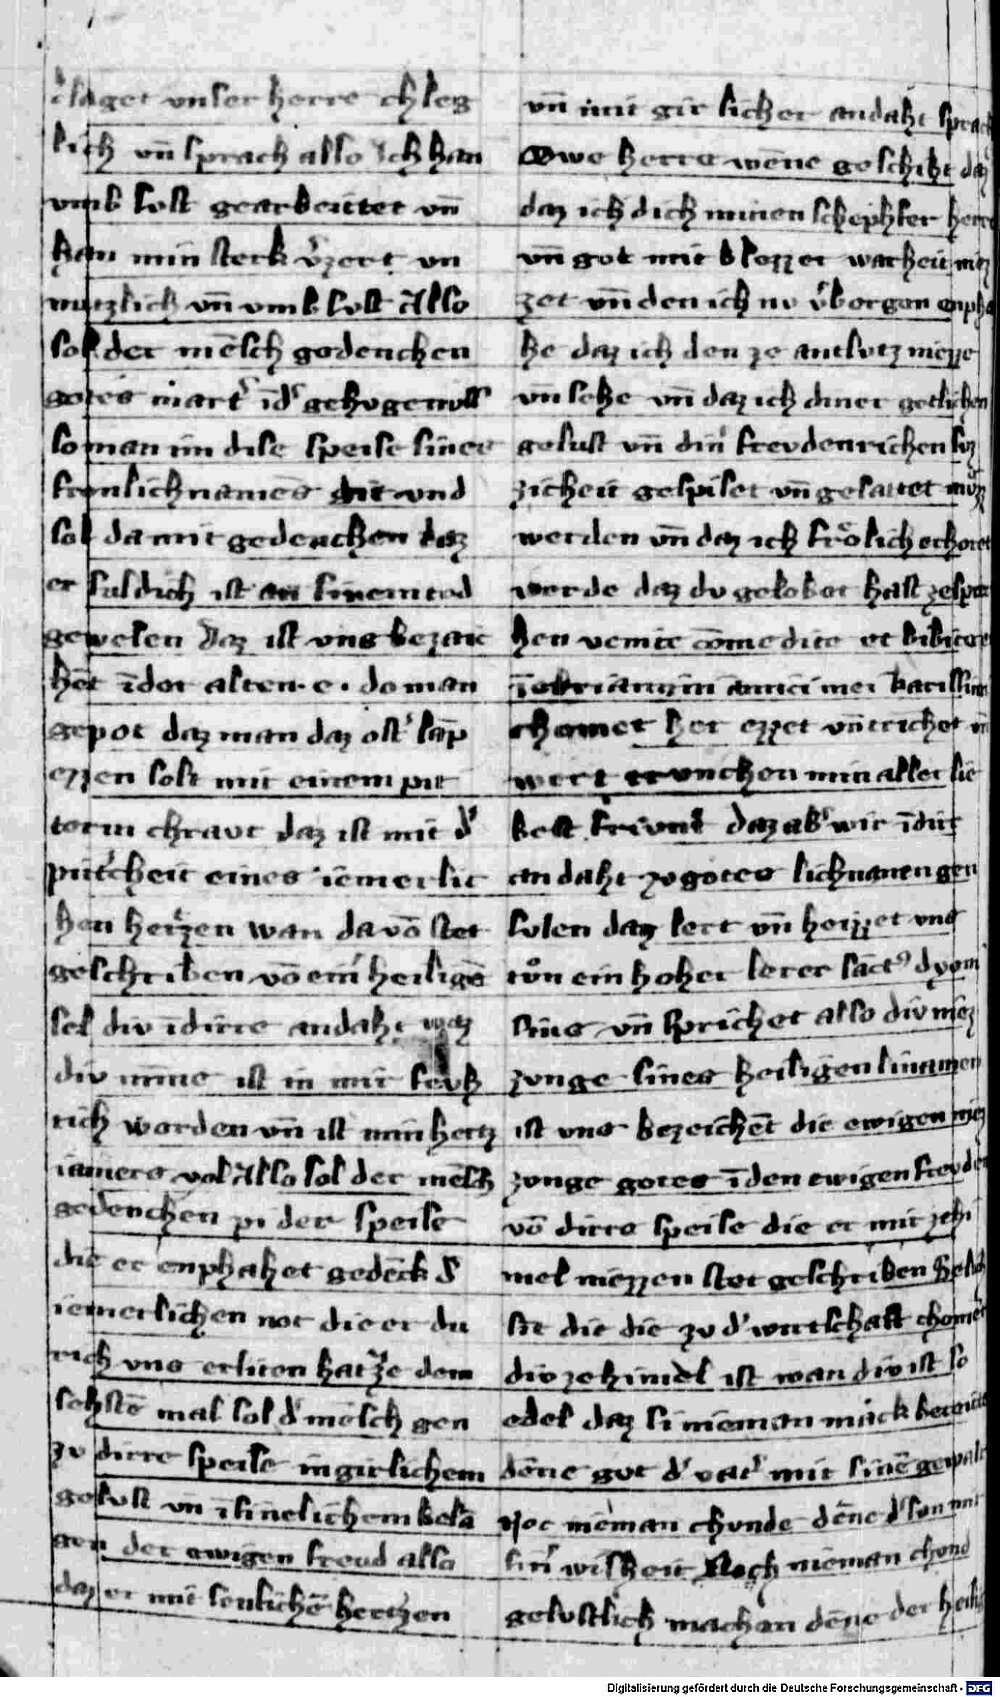 claget vnser herre chleg
lich vn̄ sprach also Ich han
vmb svst gearbeitet vn̄
han min sterk v̓zert vn
nvtzlich vn̄ vmb svst Also
sol der mēsch gedenchen
gotes mart̓ īd̓ gehvgenvss
so man im dise speise sines
fronlichnames git vnd
sol da mit gedenchen daz
er schldich ist an sinem tod
gewesen daz ist vns bezaic
hēt īder alten · e · do man
gepot daz man daz ost̓ lāp
ezzen solt mit einem pit
term chravt daz ist mit d̓
pitt̓cheit eines iemerlic
hen hertzen wan da vō stet
geschriben vō eim̓ heiligē
sel div īdirre andaht waz
div minne ist in mir fevh
tich worden vn̄ ist min hertz
iamers vol Also sol der mēsch
gedenchen pi der speise
die er enphahet gedēck d̓
iemerlichen not die er du
rich vns erliten hat Ze dem
sehstē mal sol d̓ mēsch gen
zv dirre speise in girlichem
gelvst vn̄ ī sinelichem bela
gen der ewigen frevd also
daz er mit senlichē hertzen
vn̄ mit gir licher andaht sprach
Owe herre wēne geschiht daz
daz ich dich minen schephfer herre
vn̄ got mit blozzer warheit niez
zet vn̄ den ich nv v̓borgen enpha
he daz ich den ze antlvtz niezze
vn̄ sehe vn̄ daz ich diner gotlichen
gelust vn̄ din̓ frevdenrichen svz
zicheit gespiset vn̄ gesattet mvͦz
werden vn̄ daz ich froͤlich erhoret
werde daz dv gelobet hast ze spre
hen venite cōmedite et bibite et
īebriamini amici mei karissimi
chomet her ezzet vn̄ trichet vn̄
wert trvnchen min aller lie
best frivnt daz ab̓ wir ī dir
andaht zv gotes lichnamen gen
svlen daz lert vn̄ heizzet vns
tvͦn ein hoher lerer sāct⁹ dyom
sius vn̄ sprichet also div niez
zvnge sines heiligen linamen
ist vns bezeichēt die ewigen niez
zvnge gotes ī den ewigen frevden
vō dirre speise die er mit ze hi
mel niezzen stet geschriben Selich
sit die die zv d̓ wirtschaft chomēt
div ze himel ist wan div ist so
edel daz si nieman mack bereitē
dēne got d̓ vat̓ mit sinē gewalt
Noc nieman chvnde dēne d̓ svn mit
sin̓ wisheit Noch nieman chond
gelvstlich machen dēne der heilig